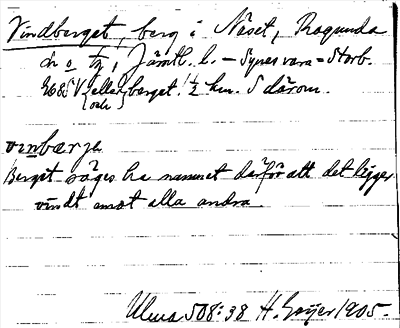 Vindberget, berg i Näset, Ragunda
sn o tg, Jämtl. l. – Synes vara = Storb.
Vberget. 1½ km. S därom.
{eller
och}
vɩnbærjɛ
Berget säges ha namnet därför att det ligger
vindt emot alla andra
Ulma 508:38 H. Geijer 1905.